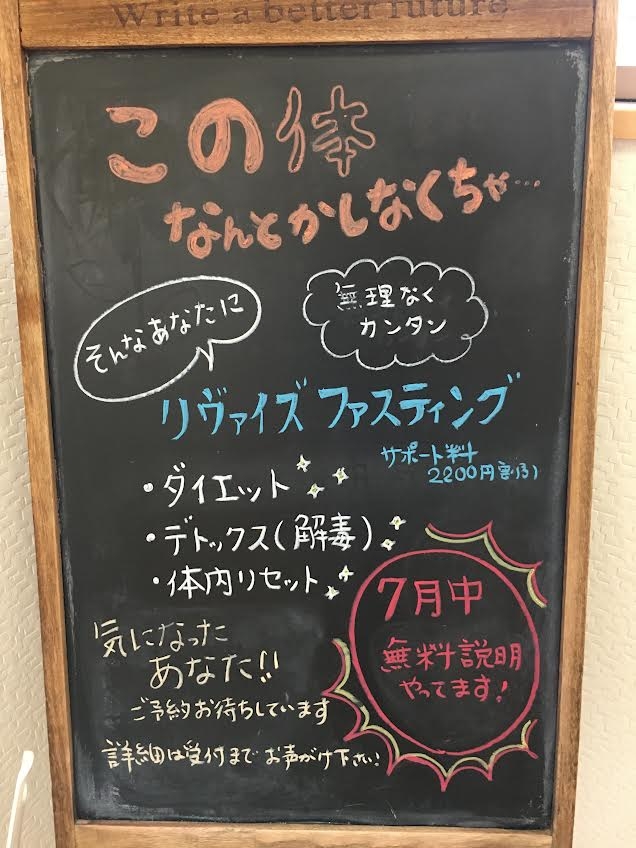 Write a better future
この体
なんとかしなくちゃ…
そんなあなたに
無理なく
カンタン
リヴァイズ ファスティング
サポート料
2200円割引
・ダイエット
・デトックス(解毒)
・体内リセット
7月中
無料説明
やってます!
気になった
あなた!!
ご予約お待ちしています
詳細は受付まで お声がけ下さい!